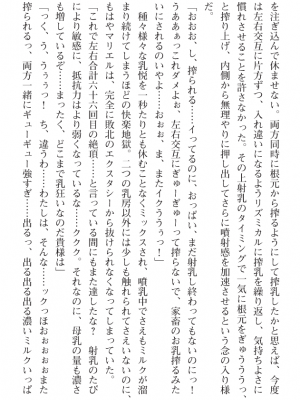 を注ぎ込んで休ませない。両方同時に根元から搾るようにして搾乳したかと思えば、今度
は左右交互に片方ずつ、入れ違いになるようリズミカルに搾乳を繰り返し、気持ちよさに
させることを許さなかった。その上射乳のタイミングで一気に根元をぎゅうううっ
と搾り上げ、内側から無理やりに押し出してさらに噴射感を加速させるという念の入り様
「おおお、し、搾られる……イってるのに、おっぱい、まだ射乳し終わってないのにっ！
うああぁっこれダメよぉ、左右交互にぎゅーぎゅーって搾らないで、家畜のお乳搾るみた
いにされるのいやよ……おぉぉ、ま、またイクううっ！」
種々様々な乳悦を一秒たりとも休むことなくミックスされ、噴乳中でさえもミルクが溜
まり続けてしまうほどの快楽地獄。二つの乳房以外には少しも触れられてさえいないのに、
もはやマリエルは、完全に敗北のエクスタシーから抜けられなくなってしまっていた。
「これで左右合計六十六回目の絶頂……と言っている間にもまた達したな？　射乳のたび
により敏感に、抵抗力はより弱くなっているな……ククク。それなのに、母乳の量も濃さ
も増しているぞ……まったく、どこまで乳狂いなのだ貴様は」
「っく、う、うぅぅっ……ち、違うわ……わたしは、そんな……っおぉぉまた
搾られるっ、両方一緒にギューギュー強すぎ……出るっ、出る出る出る濃いミルクいっぱ